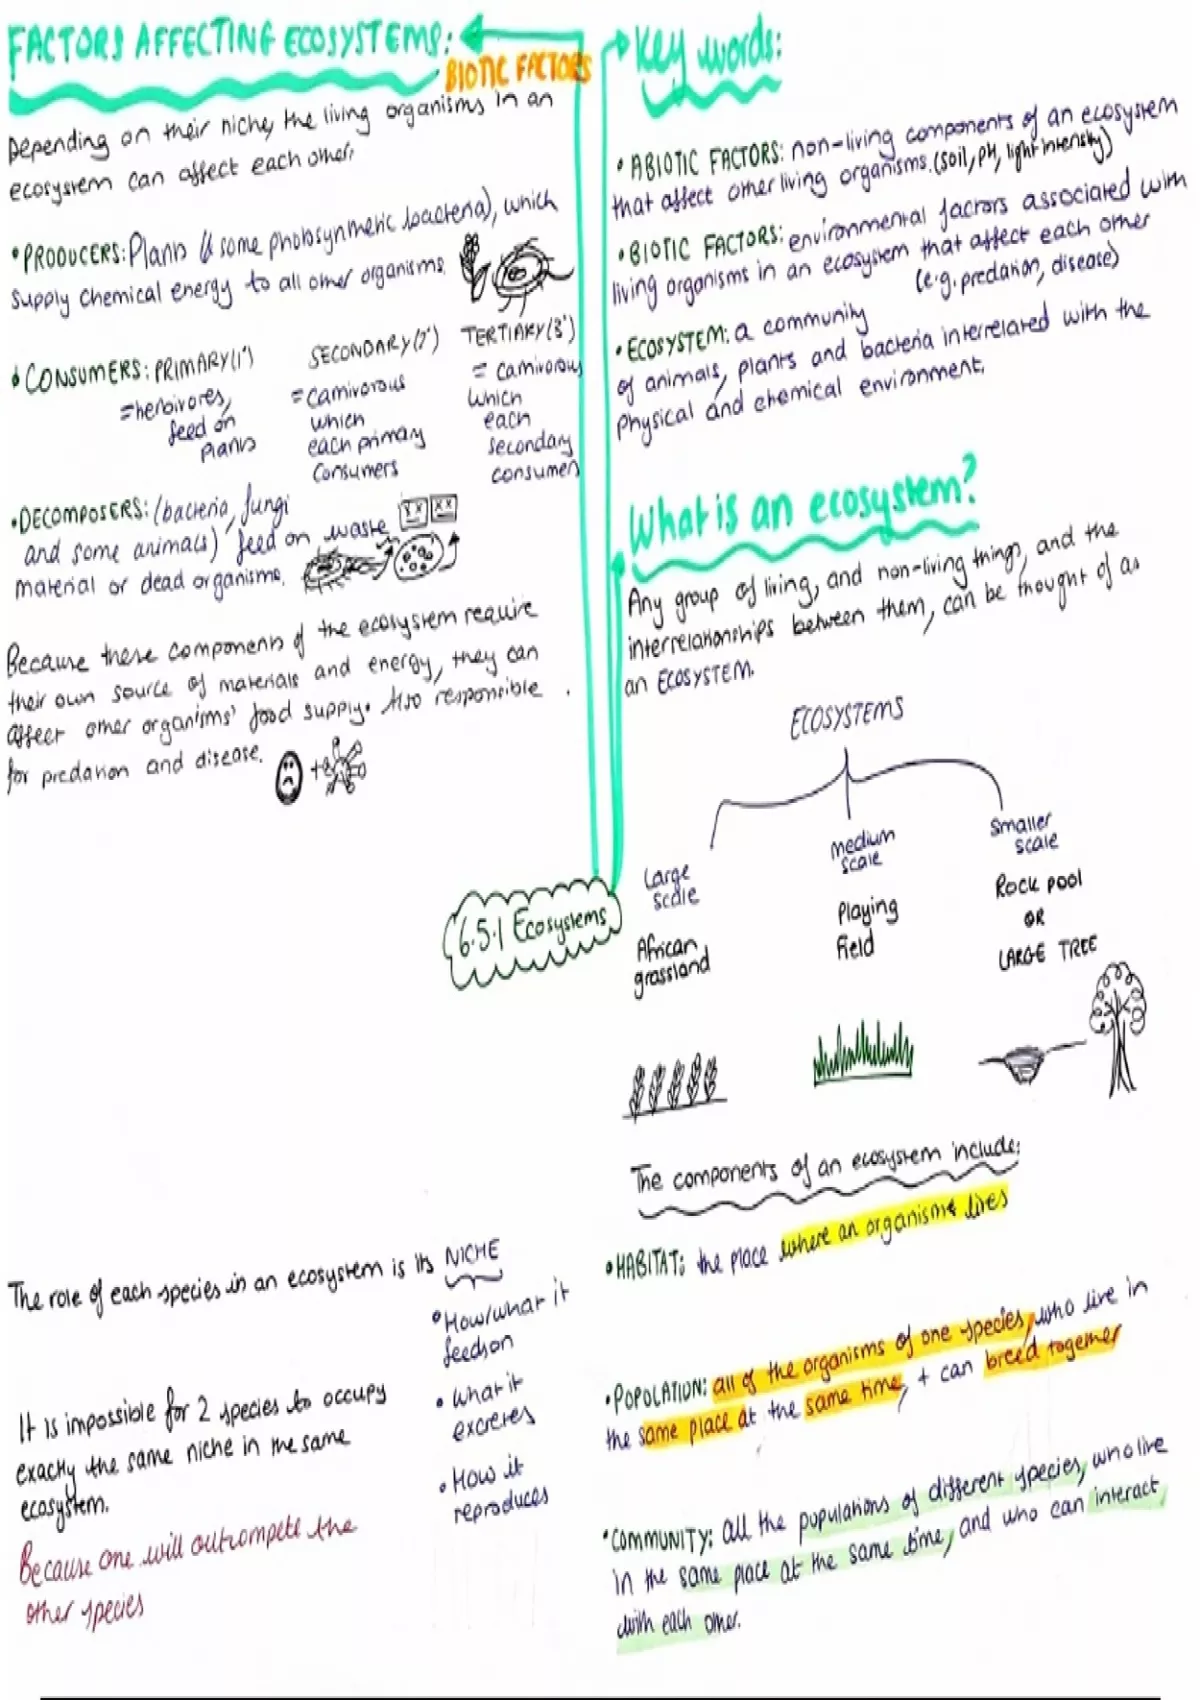 FACTORS AFFECTING ECOSYSTEMS:
BIOTIC FACTORS
Depending on their niche, the living organisms in an
ecosystem can affect each other.
•PRODUCERS: Plants (& some photosynthetic bacteria), which
supply chemical energy to all other organisms.
•CONSUMERS: PRIMARY(1°)
=herbivores,
feed on
plants
SECONDARY(2°)
=carnivorous
which
each primary
consumers
TERTIARY(3°)
= carnivorous
which
each
secondary
consumers
•DECOMPOSERS: (bacteria, fungi
and some animals) feed on waste
material or dead organisms.
Because these components of the ecosystem require
their own source of materials and energy, they can
affect other organisms' food supply. Also responsible
for predation and disease.
6.5.1 Ecosystems
The role of each species in an ecosystem is its NICHE
•How/what it
feeds on
•What it
excretes
•How it
reproduces
It is impossible for 2 species to occupy
exactly the same niche in the same
ecosystem.
Because one will outcompete the
other species
Key words:
•ABIOTIC FACTORS: non-living components of an ecosystem
that affect other living organisms. (soil, pH, light intensity)
•BIOTIC FACTORS: environmental factors associated with
living organisms in an ecosystem that affect each other
(e.g. predation, disease)
•ECOSYSTEM: a community
of animals, plants and bacteria interrelated with the
physical and chemical environment.
What is an ecosystem?
Any group of living, and non-living things, and the
interrelationships between them, can be thought of as
an ECOSYSTEM.
ECOSYSTEMS
Large
scale
African
grassland
medium
scale
Playing
field
Smaller
scale
Rock pool
OR
LARGE TREE
The components of an ecosystem include:
•HABITAT: the place where an organism lives
•POPOLATION: all of the organisms of one species, who live in
the same place at the same time, + can breed together
•COMMUNITY: all the populations of different species, who live
in the same place at the same time, and who can interact
with each other.